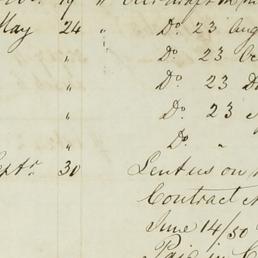 19 "
May 24 " Do 23 Aug
" Do 23
" Do 23 D
" Do 23
" Do "
Septr 30 Lent us on
Contract
June 14/50
Paid in C